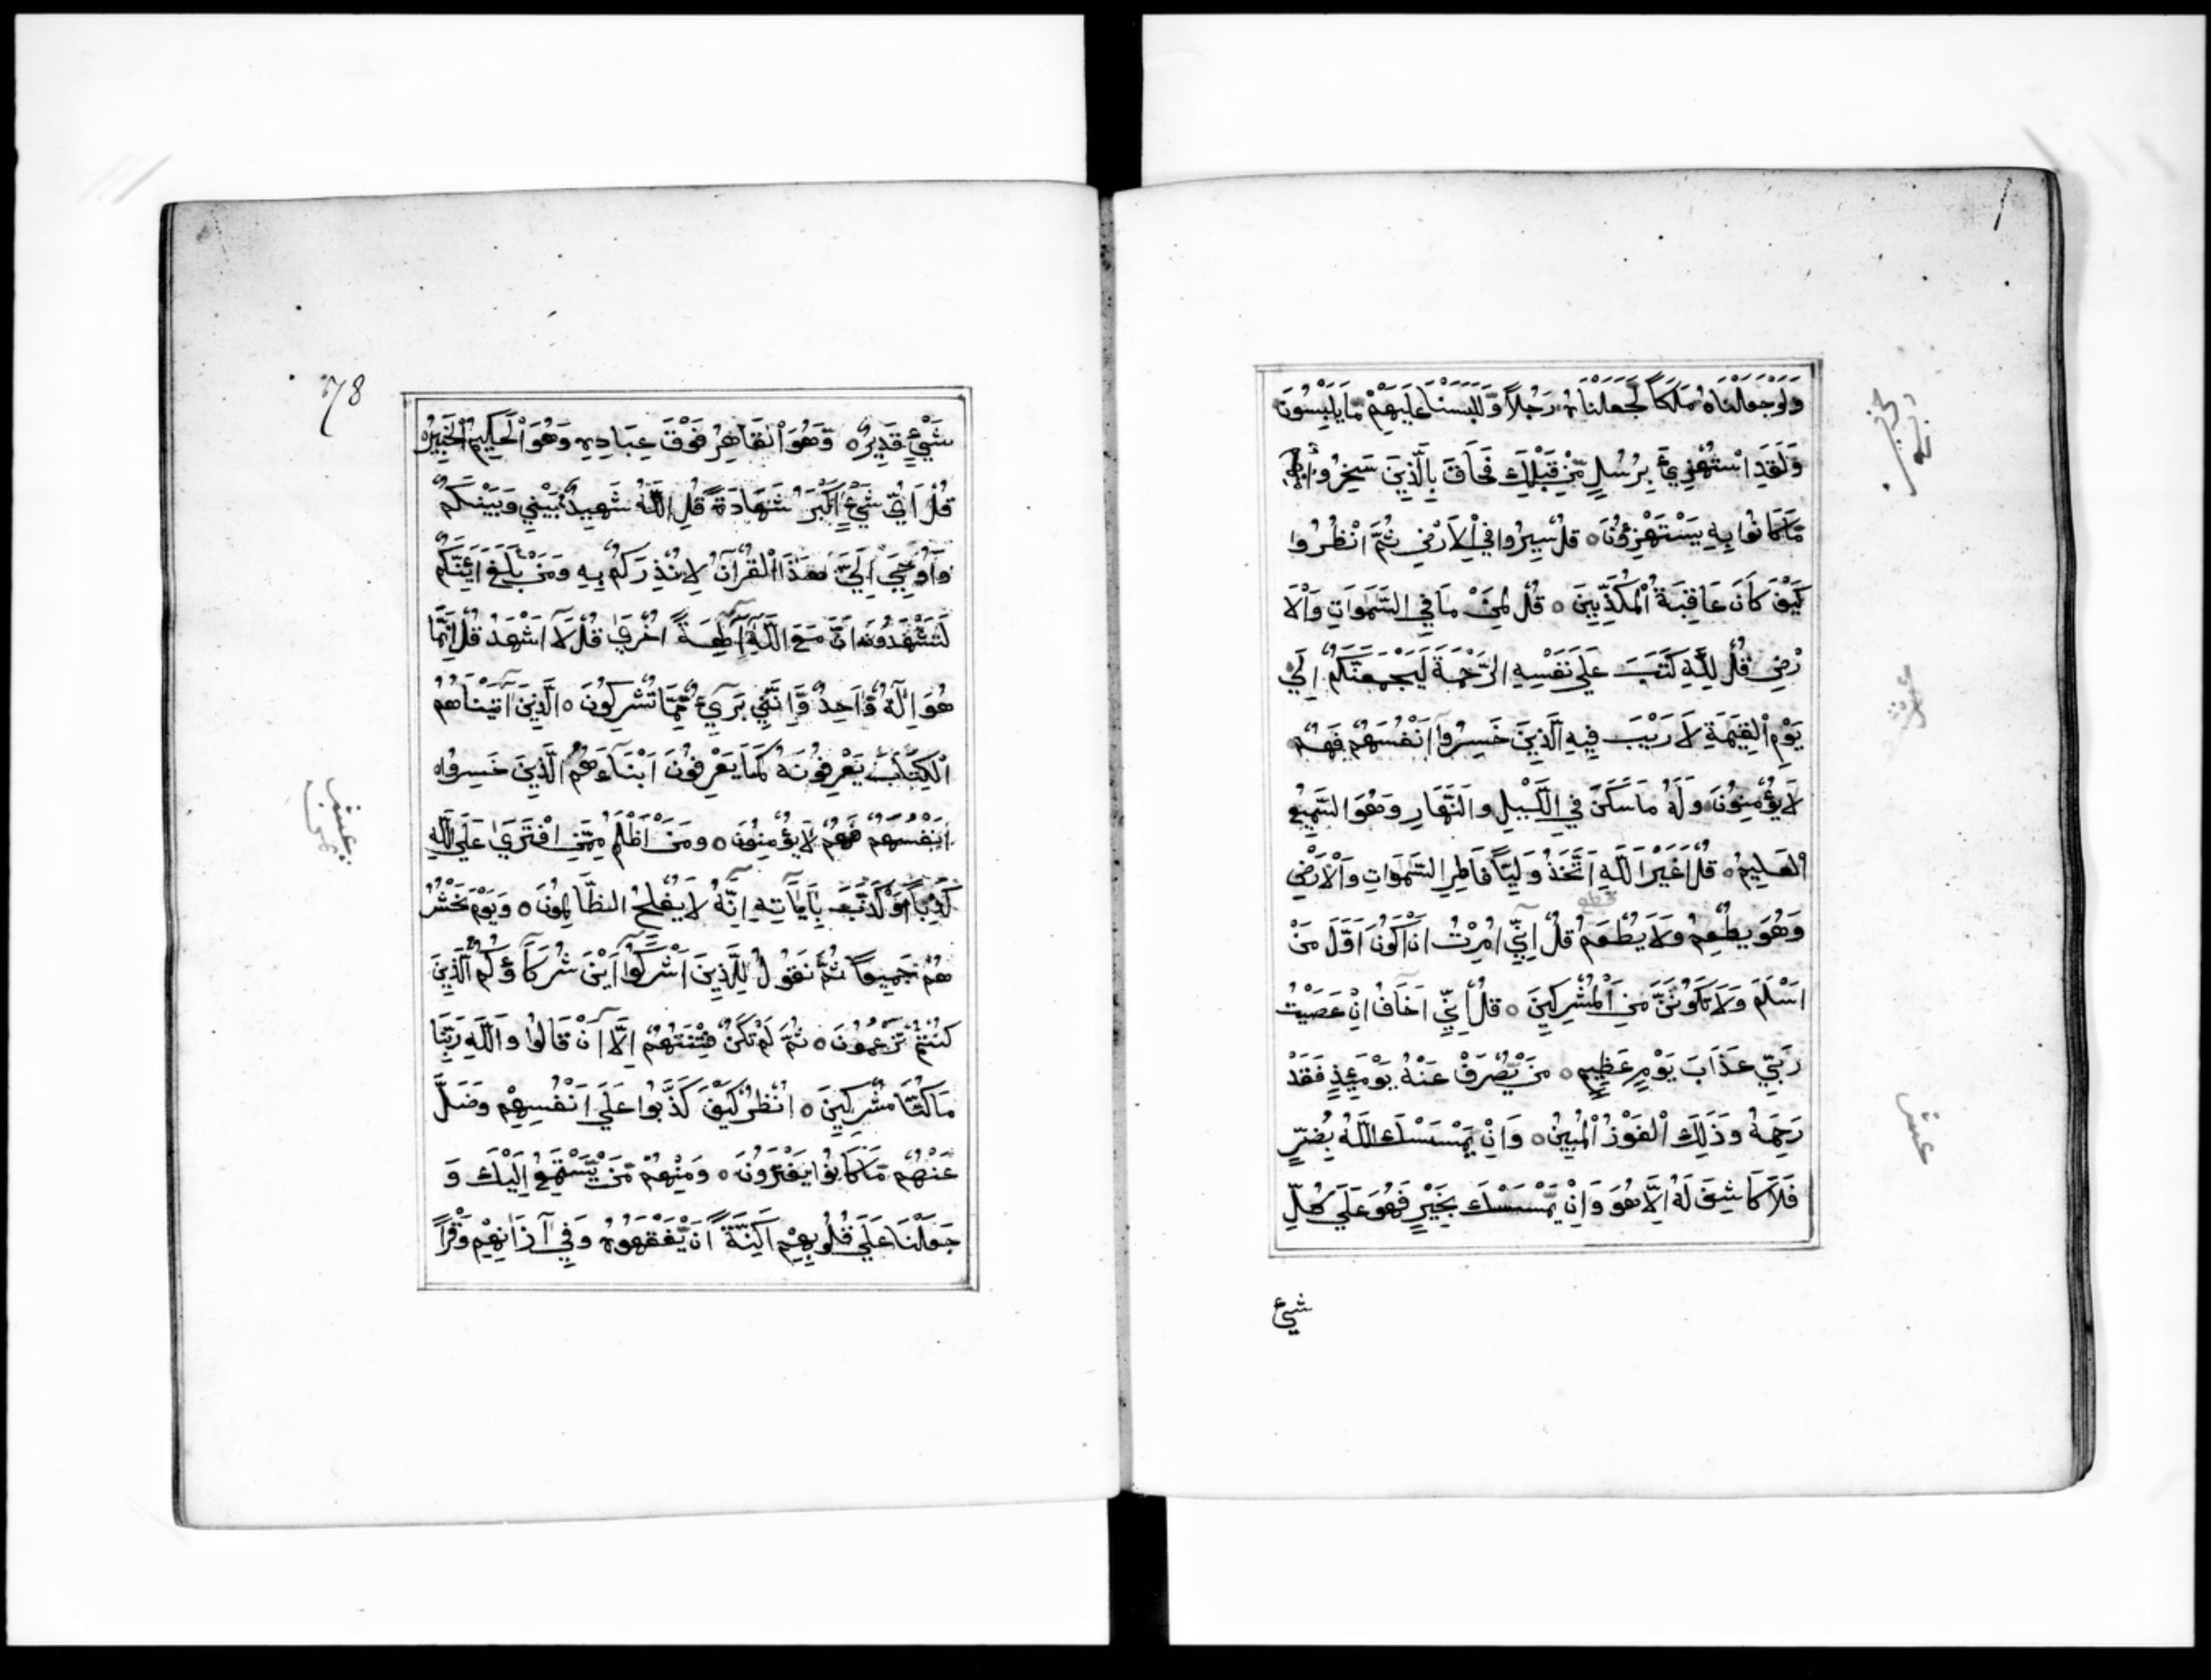 وَلَوْجَعَلْنَاهُ مَلَكاً لَجَعَلْنَاهُ رَجُلاً وَّلَلَبَسْنَا عَلَيْهِمْ مَّا يَلْبِسُونَ
وَلَقَدِ اسْتُهْزِئَ بِرُسُلٍ مِّنْ قَبْلِكَ فَحَاقَ بِالَّذِينَ سَخِرُوا
مَّا كَانُوا بِهِ يَسْتَهْزِؤُنَ ٥ قُلْ سِيرُوا فِي الْاَرْضِ ثُمَّ انْظُرُوا
كَيْفَ كَانَ عَاقِبَةُ الْمُكَذِّبِينَ ٥ قُلْ لِمَنْ مَا فِي السَّمٰوَاتِ وَالْاَ
رْضِ قُلْ لِلّٰهِ كَتَبَ عَلَي نَفْسِهِ الرَّحْمَةَ لَيَجْمَعَنَّكُمْ اِلَي
يَوْمِ الْقِيٰمَةِ لَا رَيْبَ فِيهِ الَّذِينَ خَسِرُوآ اَنْفُسَهُمْ فَهُمْ
لَا يُؤْمِنُونَ وَلَهُ مَا سَكَنَ فِي اللَّيْلِ وَالنَّهَارِ وَهُوَ السَّمِيعُ
الْعَلِيمُ ٥ قُلْ اَغَيْرَ اللّٰهِ اَتَّخِذُ وَلِيّاً فَاطِرِ السَّمٰوَاتِ وَالْاَرْضِ
وَهُوَ يُطْعِمُ وَلَا يُطْعَمُ قُلْ اِنِّيٓ اُمِرْتُ اَنْ اَكُونَ اَوَّلَ مَنْ
اَسْلَمَ وَلَا تَكُونَنَّ مِنَ الْمُشْرِكِينَ ٥ قُلْ اِنِّيٓ اَخَافُ اِنْ عَصَيْتُ
رَبِّي عَذَابَ يَوْمٍ عَظِيمٍ ٥ مَنْ يُّصْرَفْ عَنْهُ يَوْمَئِذٍ فَقَدْ
رَحِمَهُ وَذٰلِكَ الْفَوْزُ الْمُبِينُ ٥ وَاِنْ يَّمْسَسْكَ اللّٰهُ بِضُرٍّ
فَلَا كَاشِفَ لَهُ اِلَّا هُوَ وَاِنْ يَّمْسَسْكَ بِخَيْرٍ فَهُوَ عَلَي كُلِّ
شيء
عشر
78
شَيْءٍ قَدِيرٌ ٥ وَّهُوَ الْقَاهِرُ فَوْقَ عِبَادِهِ وَهُوَ الْحَكِيمُ الْخَبِيرُ ٥
قُلْ اَيُّ شَيْءٍ اَكْبَرُ شَهَادَةً قُلِ اللّٰهُ شَهِيدٌ بَيْنِي وَبَيْنَكُمْ
وَاُوحِيَ اِلَيَّ هٰذَا الْقُرْآنُ لِاُنْذِرَكُمْ بِهِ وَمَنْ بَلَغَ اَئِنَّكُمْ
لَتَشْهَدُونَ اَنَّ مَعَ اللّٰهِ آلِهَةً اُخْرَيٰ قُلْ لَآ اَشْهَدُ قُلْ اِنَّمَا
هُوَ اِلٰهٌ وَّاحِدٌ وَّاِنَّنِي بَرِيٓءٌ مِّمَّا تُشْرِكُونَ ٥ اَلَّذِينَ اٰتَيْنَاهُمُ
الْكِتَابَ يَعْرِفُونَهُ كَمَا يَعْرِفُونَ اَبْنَآءَهُمُ الَّذِينَ خَسِرُوا
اَنْفُسَهُمْ فَهُمْ لَا يُؤْمِنُونَ ٥ وَمَنْ اَظْلَمُ مِمَّنِ افْتَرَيٰ عَلَي اللّٰهِ
كَذِباً اَوْ كَذَّبَ بِاٰيَاتِهِ اِنَّهُ لَا يُفْلِحُ الظَّالِمُونَ ٥ وَيَوْمَ نَحْشُرُ
هُمْ جَمِيعاً ثُمَّ نَقُولُ لِلَّذِينَ اَشْرَكُوآ اَيْنَ شُرَكَآؤُكُمُ الَّذِينَ
كُنْتُمْ تَزْعُمُونَ ٥ ثُمَّ لَمْ تَكُنْ فِتْنَتُهُمْ اِلَّآ اَنْ قَالُوا وَاللّٰهِ رَبِّنَا
مَا كُنَّا مُشْرِكِينَ ٥ اُنْظُرْ كَيْفَ كَذَبُوا عَلَي اَنْفُسِهِمْ وَضَلَّ
عَنْهُمْ مَّا كَانُوا يَفْتَرُونَ ٥ وَمِنْهُمْ مَّنْ يَّسْتَمِعُ اِلَيْكَ وَ
جَعَلْنَا عَلَي قُلُوبِهِمْ اَكِنَّةً اَنْ يَّفْقَهُوهُ وَفِي آذَانِهِمْ وَقْراً